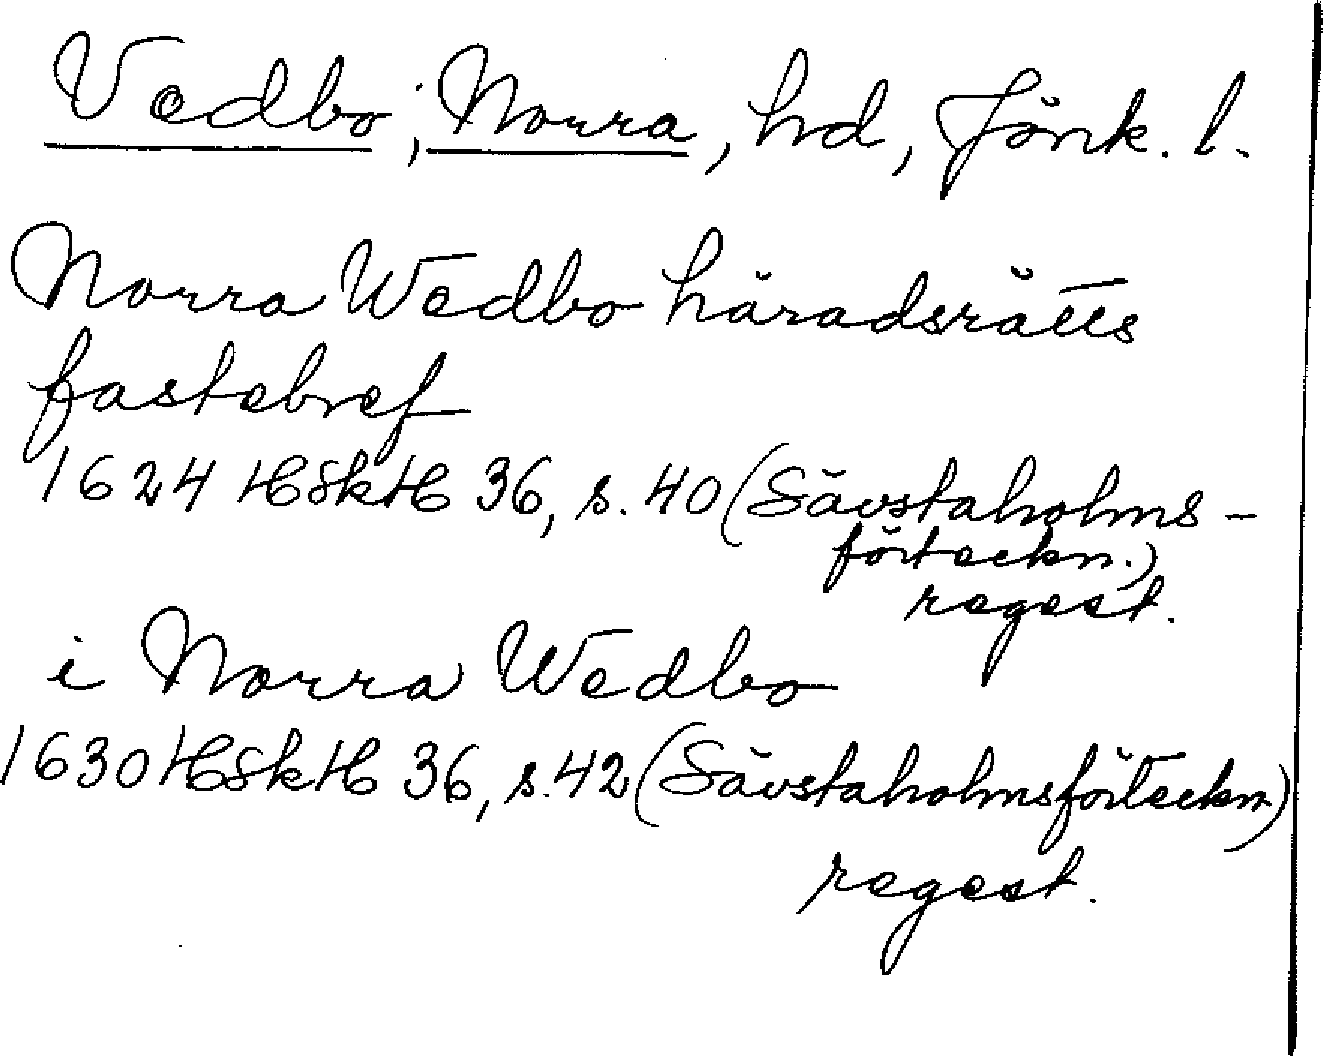 Vedbo, Norra, hd, Jönk. l.
Norra Wedbo häradsrätts
fastebref
1624 HSkH 36, s. 40 (Sävstaholms-
förteckn.)
regest.
i Norra Wedbo
1630 HSkH 36, s. 42 (Sävstaholmsförteckn.)
regest.